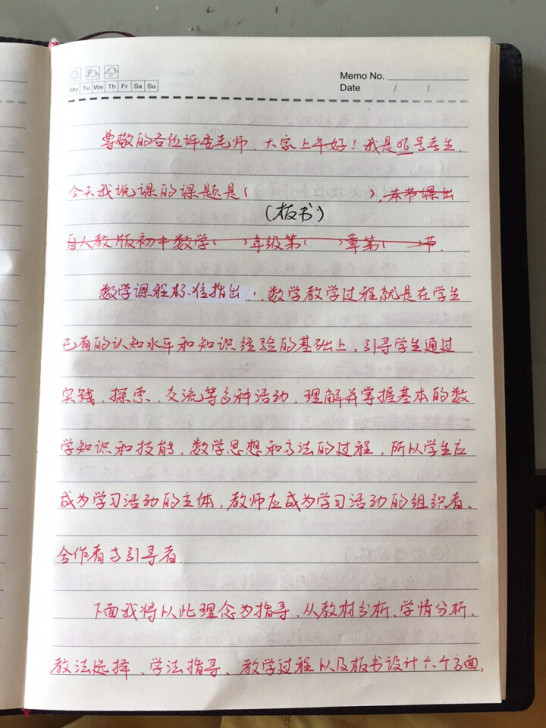 Memo No.
Mo Tu We Th Fr Sa Su
Date / /
尊敬的各位评委老师,大家上午好!我是 号考生.
今天我说课的课题是( ),本节课出
(板书)
自人教版初中数学( )年级第( )章第( )节.
数学课程标准指出,数学教学过程就是在学生
已有的认知水平和知识经验的基础上,引导学生通过
实践、探索、交流等多种活动,理解并掌握基本的数
学知识和技能,数学思想和方法的过程,所以学生应
成为学习活动的主体,教师应成为学习活动的组织者、
合作者与引导者.
下面我将以此理念为指导,从教材分析、学情分析、
教法选择、学法指导、教学过程以及板书设计六个方面,